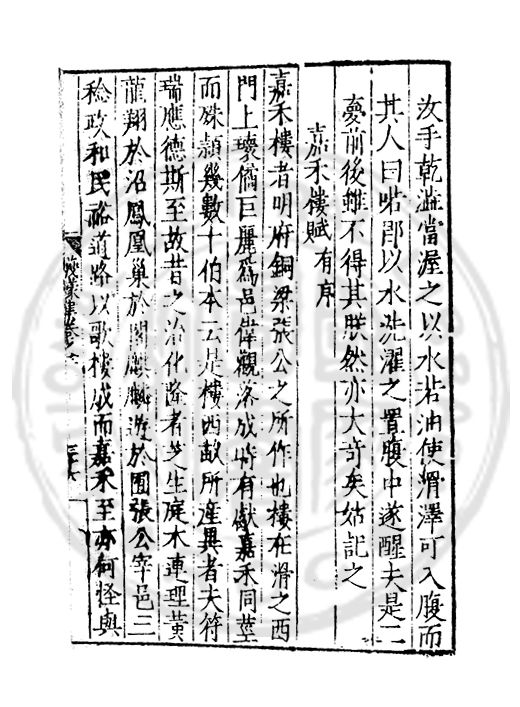 汝手乾澁當渥之以水若油使滑澤可入腹而
其人曰喏郎以水洗濯之置腹中遂醒夫是二
夢前後雖不得其朕然亦大奇矣姑記之
嘉禾樓賦有序
嘉禾樓者明府銅梁張公之所作也樓在滑之西
門上瓌偉巨麗爲邑偉觀落成時有獻嘉禾同莖
而殊頴幾數十伯本云是樓西畝所産異者夫符
瑞應德斯至故昔之治化隆者芝生庭木連理黄
龍翔於沼鳳凰巢於閣麒麟遊於囿張公宰邑三
稔政和民裕道路以歌樓成而嘉禾至亦何怪與